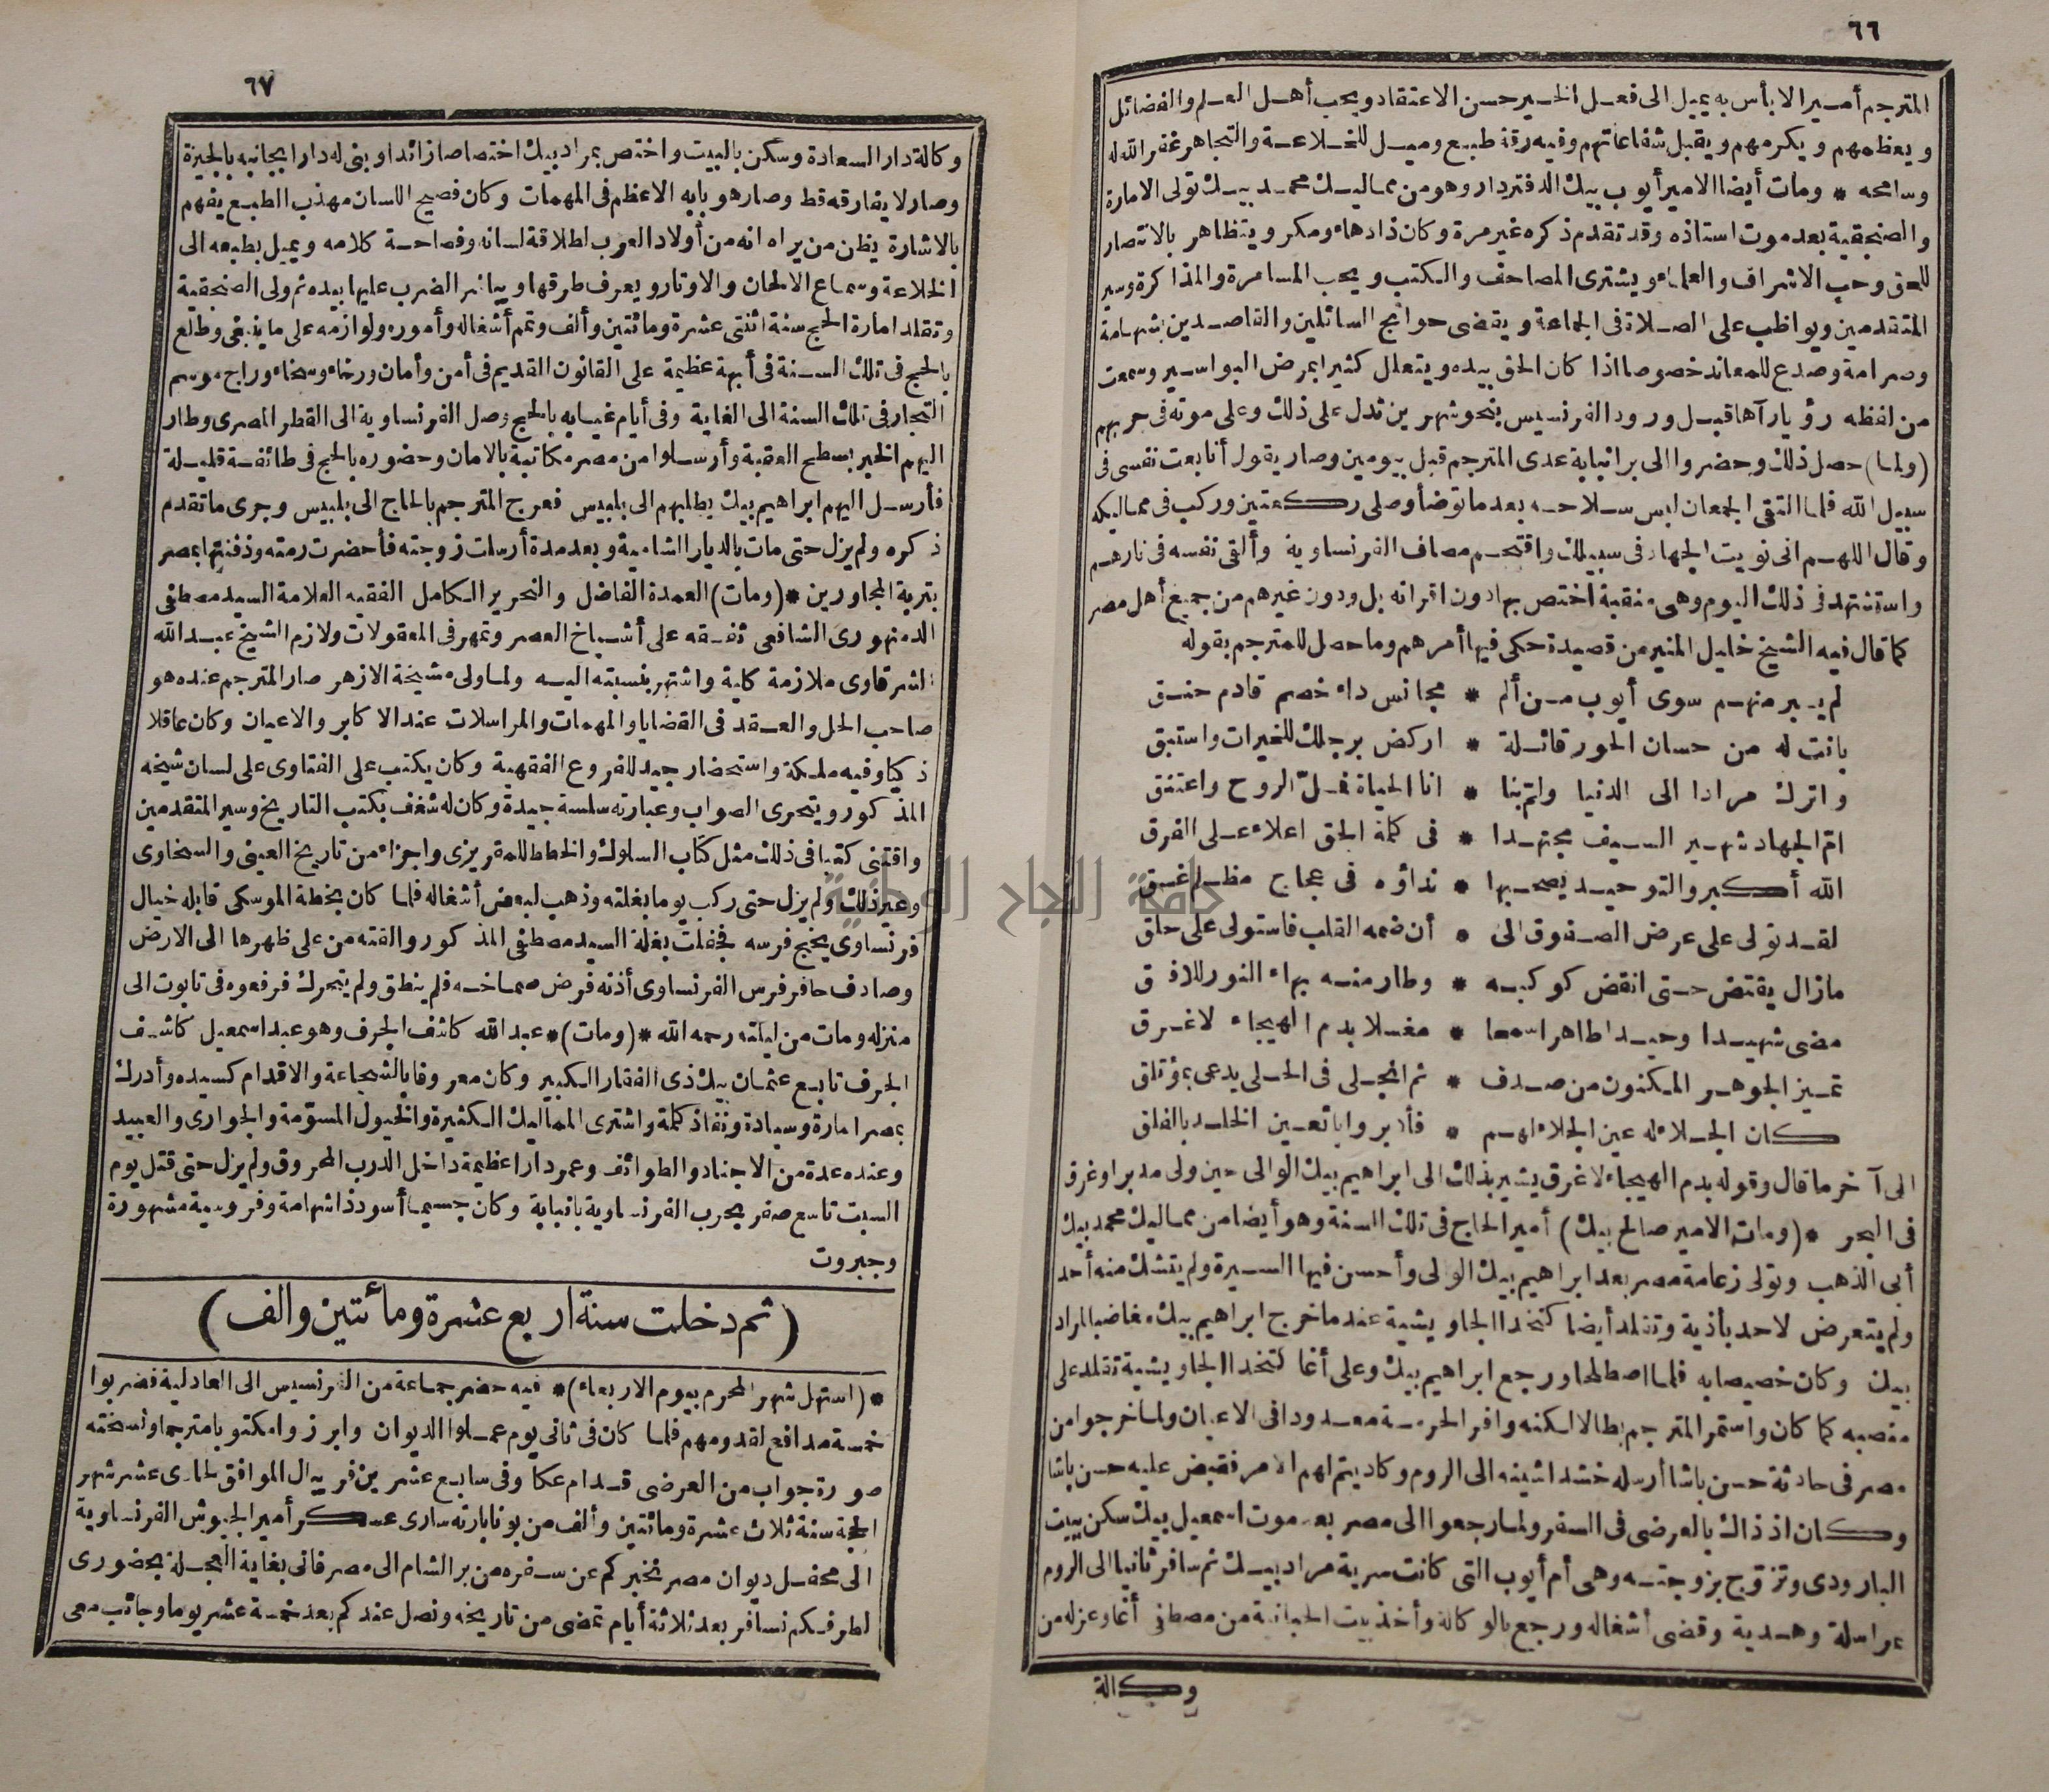 ٦٦
المترجم أميرا لا بأس به يميل الى فعل الخير حسن الاعتقاد ويحب أهل العلم والفضائل
ويعظمهم ويكرمهم ويقبل شفاعاتهم وفيه رقة طبع وميل للخلاعة والتجاهر غفر الله له
وسامحه * ومات أيضا الامير أيوب بيك الدفتردار وهو من مماليك محمد بيك تولى الامارة
والصنجقية بعد موت استاذه وقد تقدم ذكره غير مرة وكان ذا دهاء ومكر ويتظاهر بالانتصار
للحق وحب الاشراف والعلماء ويشترى المصاحف والكتب ويحب المسامرة والمذاكرة وسير
المتقدمين ويواظب على الصلاة فى الجماعة ويقضى حوائج السائلين والقاصدين بشهامة
وصرامة وصدع للمعاند خصوصا اذا كان الحق بيده ويتعلل كثيرا بمرض البواسير وسمعت
من لفظه رؤيا رآها قبل ورود الفرنسيس بنحو شهرين تدل على ذلك وعلى موته فى حربهم
(ولما) حصل ذلك وحضروا الى برانبابة عدى المترجم قبل بيومين وصار يقول أنا بعت نفسى فى
سبيل الله فلما التقى الجمعان لبس سلاحه بعد ما توضأ وصلى ركعتين وركب فى مماليكه
وقال اللهم انى نويت الجهاد فى سبيلك واقتحم مصاف الفرنساوية وألقى نفسه فى نارهم
واستشهد فى ذلك اليوم وهى منقبة اختص بها دون اقرانه بل ودون غيرهم من جميع أهل مصر
كما قال فيه الشيخ خليل المنير من قصيدة حكى فيها أمرهم وما حصل للمترجم بقوله
لم يبر منهم سوى أيوب من ألم * مجانس داء خصم قادم حنق
بانت له من حسان الحور قائلة * اركض برجلك للخيرات واستبق
واترك مرادا الى الدنيا واتم بنا * انا الحياة فخل الروح واعتنق
ام الجهاد شهير السيف مجتهدا * فى كلمة الحق اعلاء على الفرق
الله أكبر والتوحيد يصحبها * نداؤه فى عجاج مظلم غسق
لقد تولى على عرض الصفوف الى * أن ضمه القلب فاستولى على حلق
مازال يقتض حتى انقض كوكبه * وطار منه بهاء النور للافق
مضى شهيدا وحيدا طاهرا سمعا * مغسلا بدم الهيجاء لا غرق
تميز الجوهر المكنون من صدف * ثم انجلى فى الحلى يدعى بمؤتلق
كان الجلاء له عين الجلاء لهم * فأدبروا باتعين الخلد بالفلق
الى آخر ما قال وقوله بدم الهيجاء لا غرق يشير بذلك الى ابراهيم بيك الوالى حين ولى مدبرا وغرق
فى البحر * (ومات الامير صالح بيك) أمير الحاج فى تلك السنة وهو أيضا من مماليك محمد بيك
أبى الذهب وتولى زعامة مصر بعد ابراهيم بيك الوالى وأحسن فيها السيرة ولم يتشك منه أحد
ولم يتعرض لاحد بأذية وتقلد أيضا كتخدا الجاويشية عندما خرج ابراهيم بيك مغاضبا لمراد
بيك وكان خصيصا به فلما اصطلحا ورجع ابراهيم بيك وعلى أغا كتخدا الجاويشية تقلد على
منصبه كما كان واستمر المترجم بطالا لكنه وافر الحرمة معدودا فى الاعيان ولما خرجوا من
مصر فى حادثة حسن باشا أرسله خشداشينه الى الروم وكاد يتم لهم الامر فقبض عليه حسن باشا
وكان اذ ذاك بالعرضى فى السفر ولما رجعوا الى مصر بعد موت اسمعيل بيك سكن ببيت
البارودى وتزوج بزوجته وهى أم أيوب التى كانت سرية مراد بيك ثم سافر ثانيا الى الروم
بمراسلة وهدية وقضى أشغاله ورجع بالوكالة وأخذ بيت الحبانية من مصطفى أغا وعزله من
وكالة
٦٧
وكالة دار السعادة وسكن بالبيت واختص بمراد بيك اختصاصا زائدا وبنى له دارا بجانبه بالجيزة
وصار لا يفارقه قط وصار هو بابه الاعظم فى المهمات وكان فصيح اللسان مهذب الطبع يفهم
بالاشارة يظن من يراه انه من أولاد العرب لطلاقة لسانه وفصاحة كلامه ويميل بطبعه الى
الخلاعة وسماع الالحان والاوتار ويعرف طرقها ويباشر الضرب عليها بيده ثم ولى الصنجقية
وتقلد امارة الحج سنة اثنتى عشرة ومائتين وألف وتمم أشغاله وأموره ولوازمه على ما ينبغى وطلع
بالحج فى تلك السنة فى أبهة عظيمة على القانون القديم فى أمن وأمان ورخاء وسخاء وراج موسم
التجار فى تلك السنة الى الغاية وفى أيام غيابه بالحج وصل الفرنساوية الى القطر المصرى وطار
اليهم الخبر بسطح العقبة وأرسلوا من مصر مكاتبة بالامان وحضوره بالحج فى طائفة قليلة
فأرسل اليهم ابراهيم بيك يطلبهم الى بلبيس فعرج المترجم بالحاج الى بلبيس وجرى ما تقدم
ذكره ولم يزل حتى مات بالديار الشامية وبعد مدة أرسلت زوجته فأحضرت رمته ودفنتها بمصر
بتربة المجاورين * (ومات) العمدة الفاضل والنحرير الكامل الفقيه العلامة السيد مصطفى
الدمنهورى الشافعى تفقه على أشياخ العصر وتمهر فى المعقولات ولازم الشيخ عبد الله
الشرقاوى ملازمة كلية واشتهر بنسبته اليه ولما ولى مشيخة الازهر صار المترجم عنده هو
صاحب الحل والعقد فى القضايا والمهمات والمراسلات عند الاكابر والاعيان وكان عاقلا
ذكيا وفيه ملكة واستحضار جيد للفروع الفقهية وكان يكتب على الفتاوى على لسان شيخه
المذكور ويتحرى الصواب وعبارته سلسة جيدة وكان له شغف بكتب التاريخ وسير المتقدمين
واقتنى كتبا فى ذلك مثل كتاب السلوك والخطط للمقريزى واجزاء من تاريخ العينى والسخاوى
وغير ذلك ولم يزل حتى ركب يوما بغلته وذهب لبعض أشغاله فلما كان بخطة الموسكى قابله خيال
فرنساوى يخج فرسه فجفلت بغلة السيد مصطفى المذكور والقته من على ظهرها الى الارض
وصادف حافر فرس الفرنساوى أذنه فرض صماخه فلم ينطق ولم يتحرك فرفعوه فى تابوت الى
منزله ومات من ليلته رحمه الله * (ومات) * عبد الله كاشف الجرف وهو عبد اسمعيل كاشف
الجرف تابع عثمان بيك ذى الفقار الكبير وكان معروفا بالشجاعة والاقدام كسيده وأدرك
بمصر امارة وسيادة ونفاذ كلمة واشترى المماليك الكثيرة والخيول المسومة والجوارى والعبيد
وعنده عدة من الاجناد والطوائف وعمر دارا عظيمة داخل الدرب المحروق ولم يزل حتى قتل يوم
السبت تاسع صفر بحرب الفرنساوية بانبابة وكان جسيما أسود ذا شهامة وفروسية مشهورة
وجبروت
(ثم دخلت سنة اربع عشرة ومائتين والف)
* (استهل شهر المحرم بيوم الاربعاء) * فيه حضر جماعة من الفرنسيس الى العادلية فضربوا
خمسة مدافع لقدومهم فلما كان فى ثانى يوم عملوا الديوان وابرزوا مكتوبا مترجما ونسخته
صورة جواب من العرضى قدام عكا وفى سابع عشرين فريال الموافق لحادى عشر شهر
الحجة سنة ثلاث عشرة ومائتين وألف من بونابارته سارى عسكر أمير الجيوش الفرنساوية
الى محفل ديوان مصر نخبركم عن سفره من بر الشام الى مصر فانى بغاية العجلة بحضورى
لطرفكم نسافر بعد ثلاثة أيام تمضى من تاريخه ونصل عندكم بعد خمسة عشر يوما وجائب معى
جامعة النجاح الوطنية